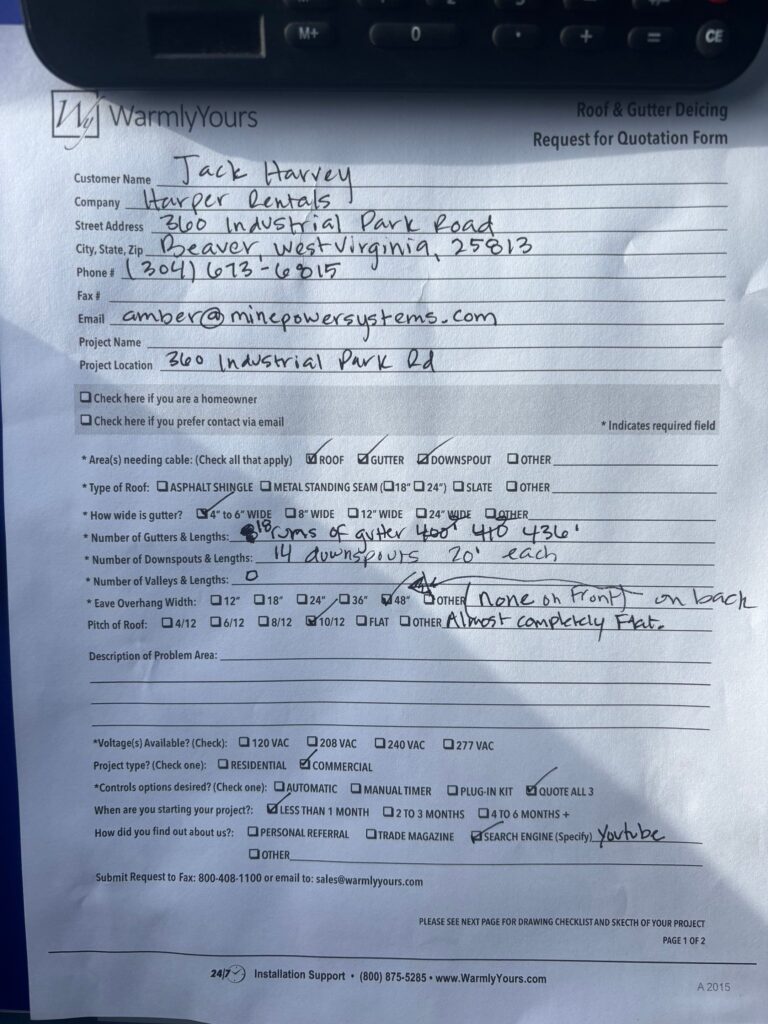 M+ 0 . + = CE
Wy WarmlyYours
Roof & Gutter Deicing
Request for Quotation Form
Customer Name Jack Harvey
Company Harper Rentals
Street Address 360 Industrial Park Road
City, State, Zip Beaver, West Virginia, 25813
Phone # (304) 673-6815
Fax #
Email amber@minepowersystems.com
Project Name
Project Location 360 Industrial Park Rd
Check here if you are a homeowner
Check here if you prefer contact via email * Indicates required field
* Area(s) needing cable: (Check all that apply) ROOF GUTTER DOWNSPOUT OTHER
* Type of Roof: ASPHALT SHINGLE METAL STANDING SEAM (18" 24") SLATE OTHER
* How wide is gutter? 4" to 6" WIDE 8" WIDE 12" WIDE 24" WIDE OTHER
* Number of Gutters & Lengths: 18 runs of gutter 400' 410 436'
* Number of Downspouts & Lengths: 14 downspouts 20' each
* Number of Valleys & Lengths: 0
* Eave Overhang Width: 12" 18" 24" 36" 48" OTHER (None on Front) on back
Pitch of Roof: 4/12 6/12 8/12 10/12 FLAT OTHER Almost completely Flat.
Description of Problem Area:
*Voltage(s) Available? (Check): 120 VAC 208 VAC 240 VAC 277 VAC
Project type? (Check one): RESIDENTIAL COMMERCIAL
*Controls options desired? (Check one): AUTOMATIC MANUAL TIMER PLUG-IN KIT QUOTE ALL 3
When are you starting your project?: LESS THAN 1 MONTH 2 TO 3 MONTHS 4 TO 6 MONTHS +
How did you find out about us?: PERSONAL REFERRAL TRADE MAGAZINE SEARCH ENGINE (Specify) Youtube
OTHER
Submit Request to Fax: 800-408-1100 or email to: sales@warmlyyours.com
PLEASE SEE NEXT PAGE FOR DRAWING CHECKLIST AND SKECTH OF YOUR PROJECT
PAGE 1 OF 2
24/7 Installation Support • (800) 875-5285 • www.WarmlyYours.com
A 2015